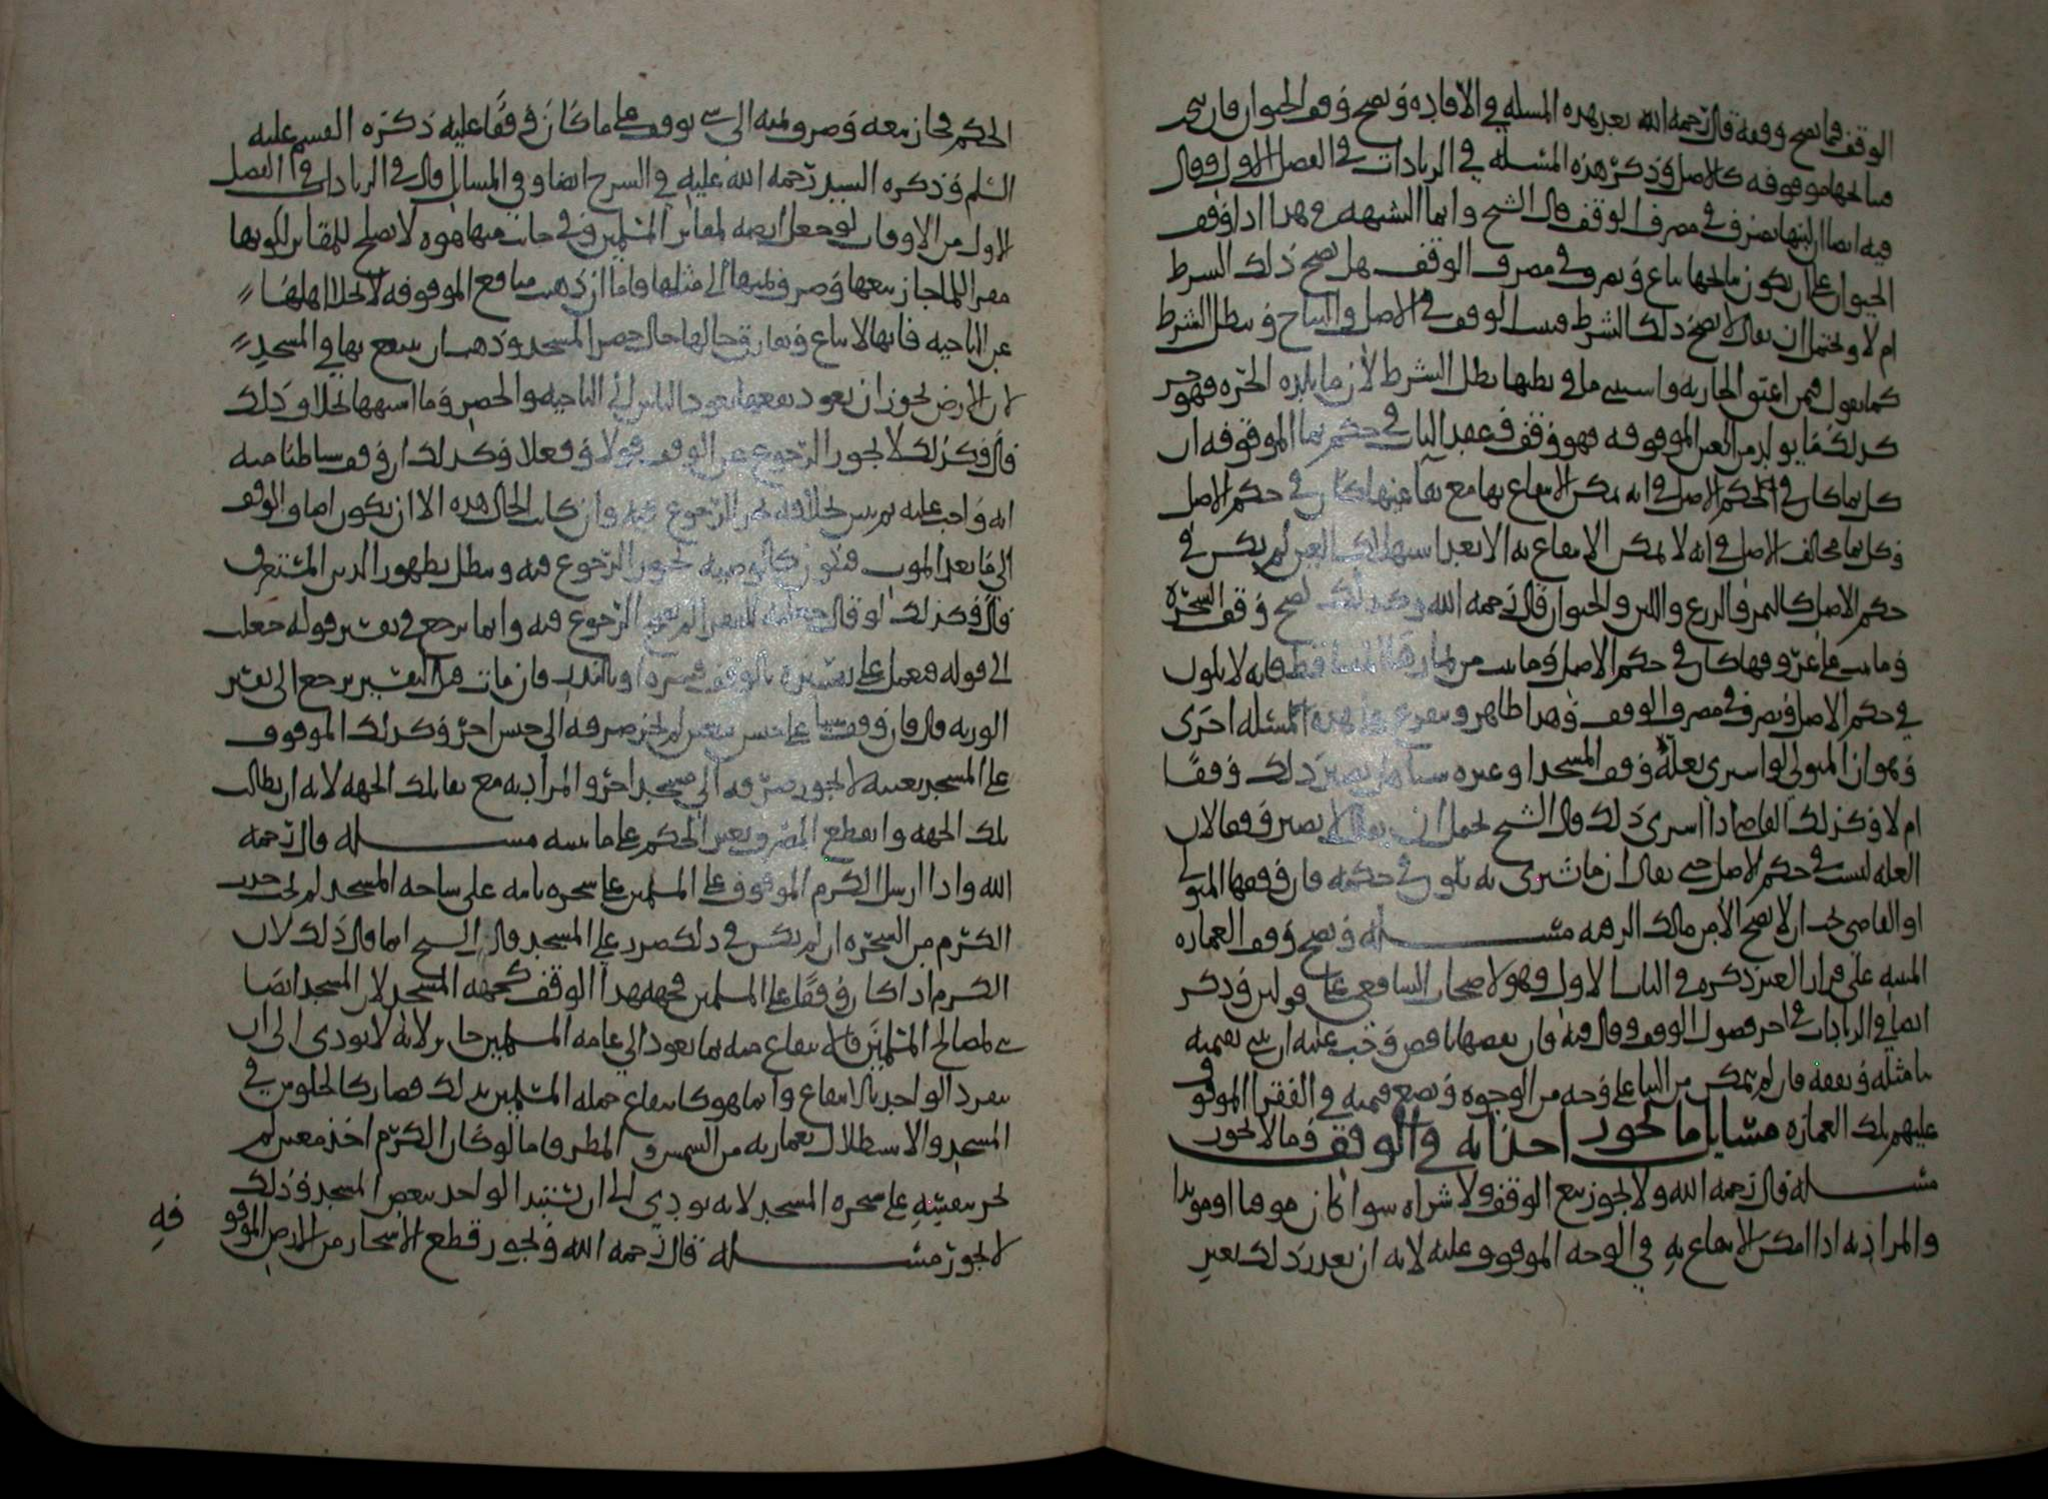 الوقف فيما يصح وقفه قال رحمه الله بعد هذه المسلة في الافادة ويصح وقف الحيوان فان
نتايجها موقوفه كالاصل وذكر هذه المسلة في الزيادات في الفصل الاول وقال
فيه ايضا ان لبنها يصرف في مصرف الوقف قال الشيخ وانما الشبهه في هذا اذا وقف
الحيوان على ان يكون نتايجها يباع ويصرف في مصرف الوقف هل يصح ذلك الشرط
ام لا ويحتمل ان يقال لا يصح ذلك الشرط فيثبت الوقف في الاصل والنتاج ويبطل الشرط
كما يقول فيمن اعتق الجاريه واستثنى ما في بطنها يبطل الشرط لان ما تلده الحره فهو حر
كذلك ما يولد من العين الموقوفه فهو وقف فعقد الباب في حكم نما الموقوفه ان
كل نما كان في الحكم الاصل في انه يمكن الانتفاع بها مع بقا عينها كان في حكم الاصل
وكل نما يخالف الاصل في انه لا يمكن الانتفاع به الا بعد استهلاك العين لم يكن في
حكم الاصل كالثمر والزرع واللبن والحيوان قال رحمه الله وكذلك يصح وقف الشجره
وما نبت من عروقها كان في حكم الاصل وما نبت من ثمارها المتساقطه فانه لا يكون
في حكم الاصل ويصرف في مصرف الوقف وهذا ظاهر ويتفرع على هذه المسئله اخرى
وهو ان المتولي لو اشترى بغلة وقف المسجد او غيره شيا هل يصير ذلك وقفا
ام لا وكذلك القاضي اذا اشترى ذلك قال الشيخ يحتمل ان يقال لا يصير وقفا لان
الغله ليست في حكم الاصل حتى يقال ان ما يشترى به يكون في حكمه فان وقفها المتولي
او القاضي يجب ان لا يصح الا من مالك الرقبه مسله ويصح وقف العماره
المبنيه على قرار الغير ذكره في الباب الاول وهو لاصحاب الشافعي على قولين وذكر
ايضا في الزيادات في اخر فصول الوقف وقال فيه فان نقصها ناقص وجب عليه ان يبني بقيمته
بنا مثله ويقفه فان لم يتمكن من البنا على وجه من الوجوه وضع قيمته في الفقرا الموقوف
عليهم تلك العماره مسايل ما يجوز احداثه في الوقف وما لا يجوز
مسله قال رحمه الله ولا يجوز بيع الوقف ولا شراه سوا كان موقتا او موبدا
والمراد به اذا امكن الانتفاع به في الوجه الموقوف عليه لانه ان تعذر ذلك تغير
الحكم فجاز بيعه وصرف ثمنه الى شي يوقف على ما كان وقفا عليه ذكره القسم عليه
السلم وذكره السيد رحمه الله عليه في الشرح ايضا وفي المسايل قال في الزيادات في الفصل
الاول من الاوقاف لو جعل ارضه لمقابر المسلمين وفي جانب منها هوه لا يصلح للمقابر لكونها
مقر الما جاز بيعها وصرف ثمنها الى مثلها فاما ان ذهبت منافع الموقوفه لانجلا اهلها
عن الناحيه فانها لا تباع ويفارق حالها حال حصر المسجد وذهب ان ينتفع بها في المسجد
لان الارض يجوز ان يعود نفعها بعود الناس الى الناحيه والحصر وما اشبهها بخلاف ذلك
قال وكذلك لا يجوز الرجوع عن الوقف قولا وفعلا وكذلك ان وقف شيا ظنا منه
انه واجب عليه ثم تبين خلافه لم يجز الرجوع فيه وان كانت الحال هذه الا ان يكون اضاف الوقف
الى ما بعد الموت فيكون كالوصيه يجوز الرجوع فيه ويبطل بظهور الدين المستغرق
قال وكذلك لو قال جعلته للفقرا لم يجز الرجوع فيه وانما يرجع في تفسير قوله جعلت
الى قوله فيعمل على تفسيره بالوقف فسره او بالنذر فان مات قبل التفسير يرجع الى تفسير
الورثه قال فان وقف شيا على جنس معين لم يجز صرفه الى جنس اخر وكذلك الموقوف
على المسجد بعينه لا يجوز صرفه الى مسجد اخر والمراد به مع بقا تلك الجهه لانه ان بطلت
تلك الجهه وانقطع المصرف يغير الحكم على ما نبينه مسله قال رحمه
الله واذا ارسل الكرم الموقوف على المسلمين على شجره نابته على ساحه المسجد لم يجب جذذ
الكرم من الشجره ان لم يكن في ذلك ضرر على المسجد قال الشيخ انما قال ذلك لان
الكرم اذا كان وقفا على المسلمين فجهه هذا الوقف كجهه المسجد لان المسجد ايضا
بني لمصالح المسلمين فالانتفاع منه بما يعود الى عامه المسلمين جايز لانه لا يودي الى ان
ينفرد الواحد بالانتفاع وانما هو كانتفاع جمله المسلمين بذلك فصار كالجلوس في
المسجد والاستظلال بعمارته من الشمس والمطر فاما لو كان الكرم اخذ معين لم
يجز تعريشه على شجره المسجد لانه يودي الى ان يستبد الواحد ببعض المسجد وذلك
لا يجوز مسله قال رحمه الله ويجوز قطع الاشجار من الارض الموقوفه
فه